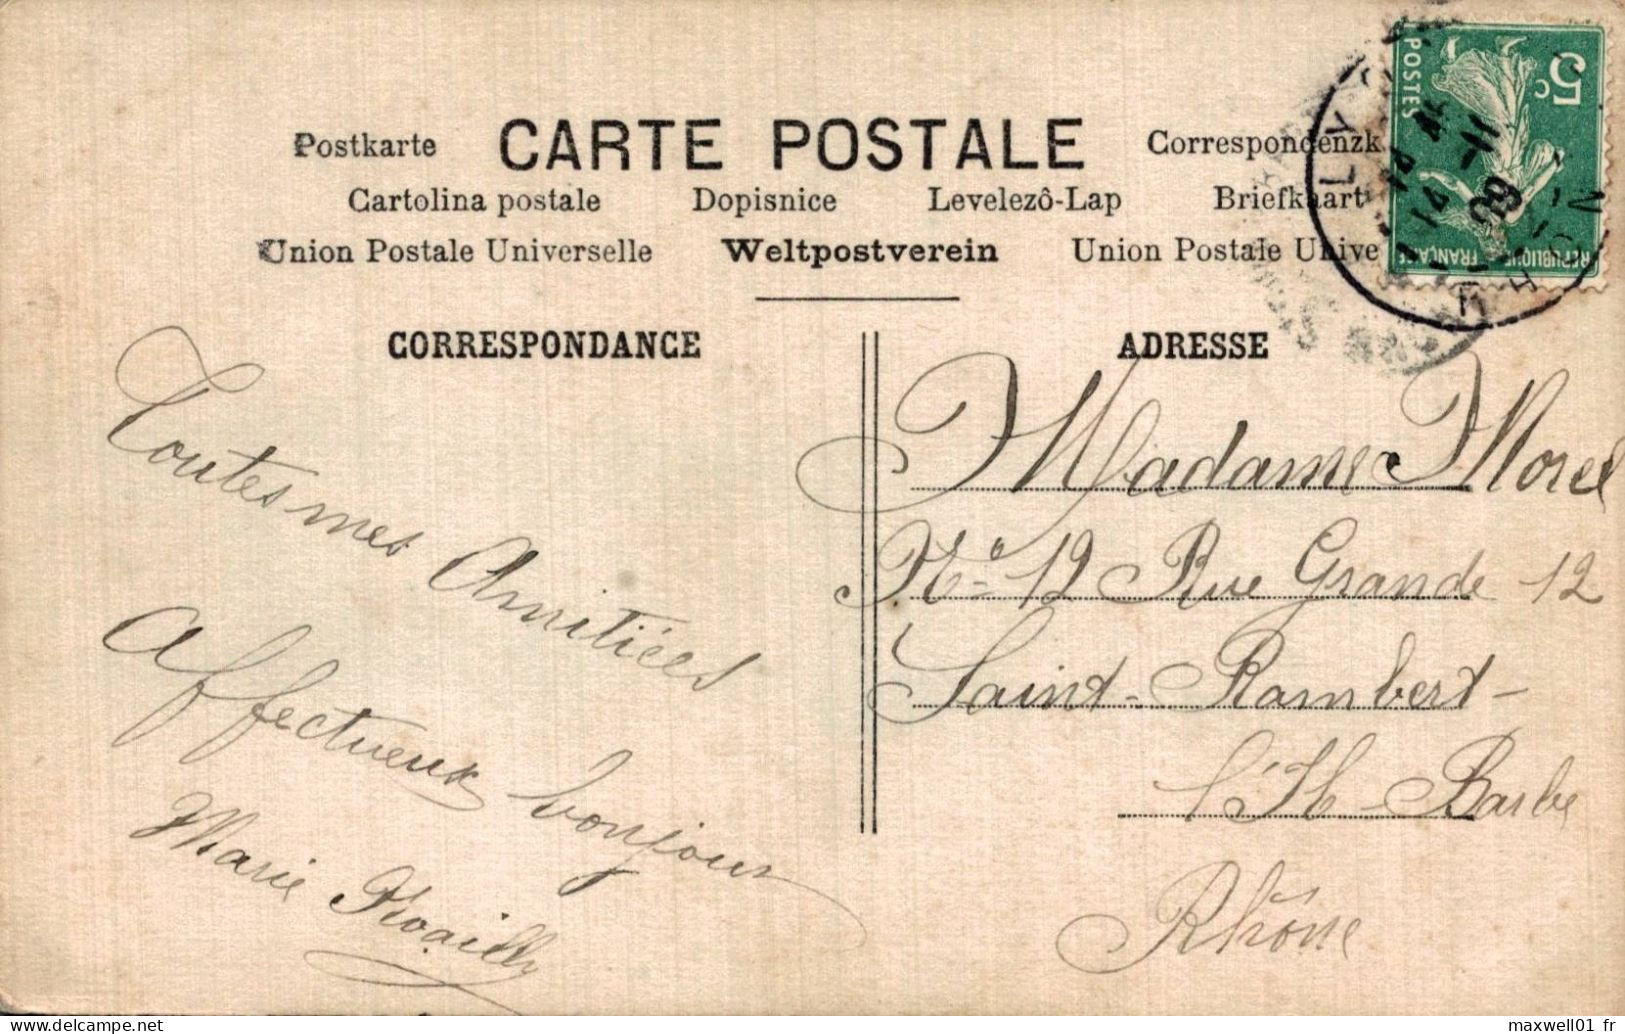 Postkarte CARTE POSTALE Correspondenzk
Cartolina postale Dopisnice Levelezô-Lap Briefkaart
Union Postale Universelle Weltpostverein Union Postale Unive
5c
POSTES
REPUBLIQUE FRANÇAISE
LY
14 -11
09
CORRESPONDANCE
Toutes mes Amitiées
Affectueux bonjour
Marie
ADRESSE
Madame Morel
N° 12 Rue Grande 12
Saint-Rambert-
l'Ile-Barbe
Rhône
maxwell01 fr